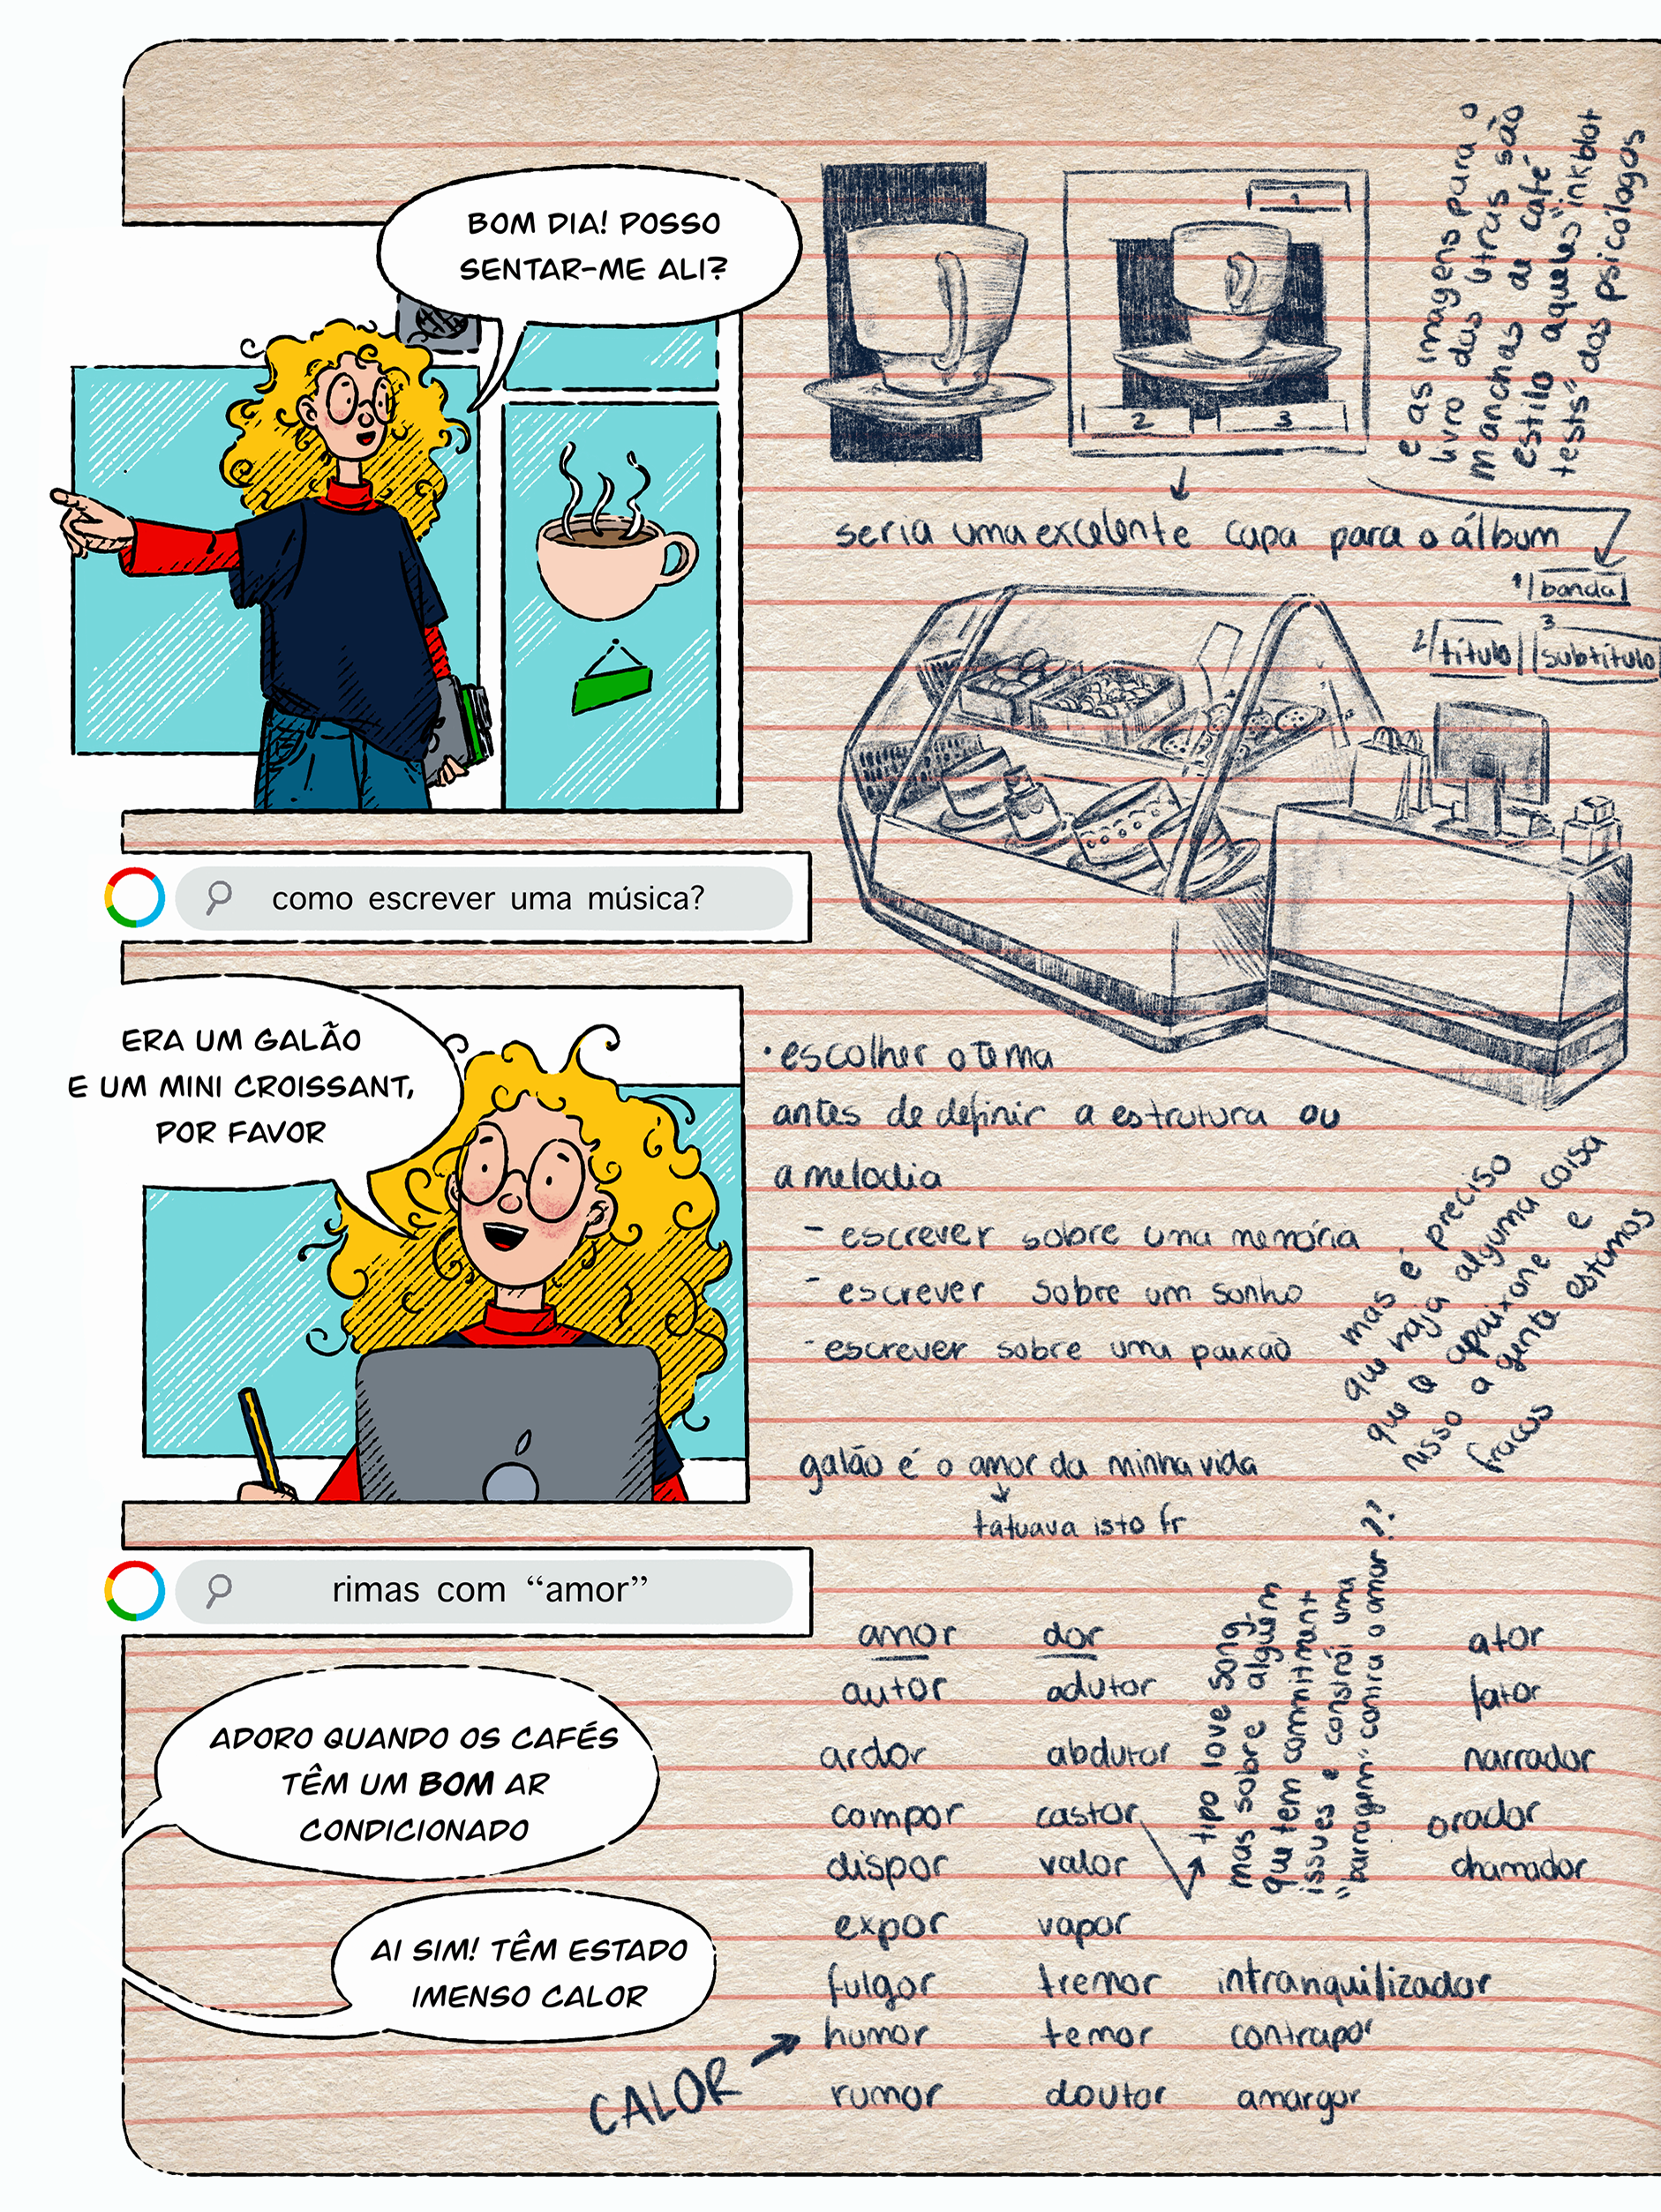 BOM DIA! POSSO
SENTAR-ME ALI?
1
2
3
e as imagens para o
livro das letras são
manchas de café
estilo aqueles "inkblot
tests" dos psicólogos
seria uma excelente capa para o álbum
1 banda
2 título
3 subtítulo
como escrever uma música?
ERA UM GALÃO
E UM MINI CROISSANT,
POR FAVOR
• escolher o tema
antes de definir a estrutura ou
a melodia
- escrever sobre uma memória
- escrever sobre um sonho
- escrever sobre uma paixão
mas é preciso
que haja alguma coisa
que a apaixone e
nisso a gente estamos
fracos
galão é o amor da minha vida
tatuava isto fr
rimas com “amor”
ADORO QUANDO OS CAFÉS
TÊM UM BOM AR
CONDICIONADO
AI SIM! TÊM ESTADO
IMENSO CALOR
CALOR
amor
autor
ardor
compor
dispor
expor
fulgor
humor
rumor
dor
adutor
abdutor
castor
valor
vapor
tremor
temor
doutor
tipo love song
mas sobre alguém
que tem commitment
issues e constrói uma
"barragem" contra o amor??
intranquilizador
contrapor
amargor
ator
fator
narrador
orador
chamador